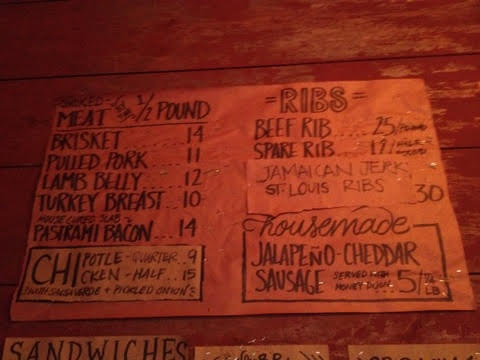 SMOKED 1/2 POUND
MEAT
BRISKET 14
PULLED PORK ... 11
LAMB BELLY ... 12
TURKEY BREAST.. 10
HOUSE CURED SLAB
PASTRAMI BACON... 14
CHI POTLE - QUARTER. 9
CKEN - HALF.. 15
WITH SALSA VERDE + PICKLED ONIONS
=RIBS=
BEEF RIB.... 25/POUND
SPARE RIB.. /HALF POUND
JAMAICAN JERK
ST. LOUIS RIBS 30
housemade
JALAPEÑO-CHEDDAR
SAUSAGE SERVED WITH HONEY DIJON .. 5/1/4 LB
SANDWICHES